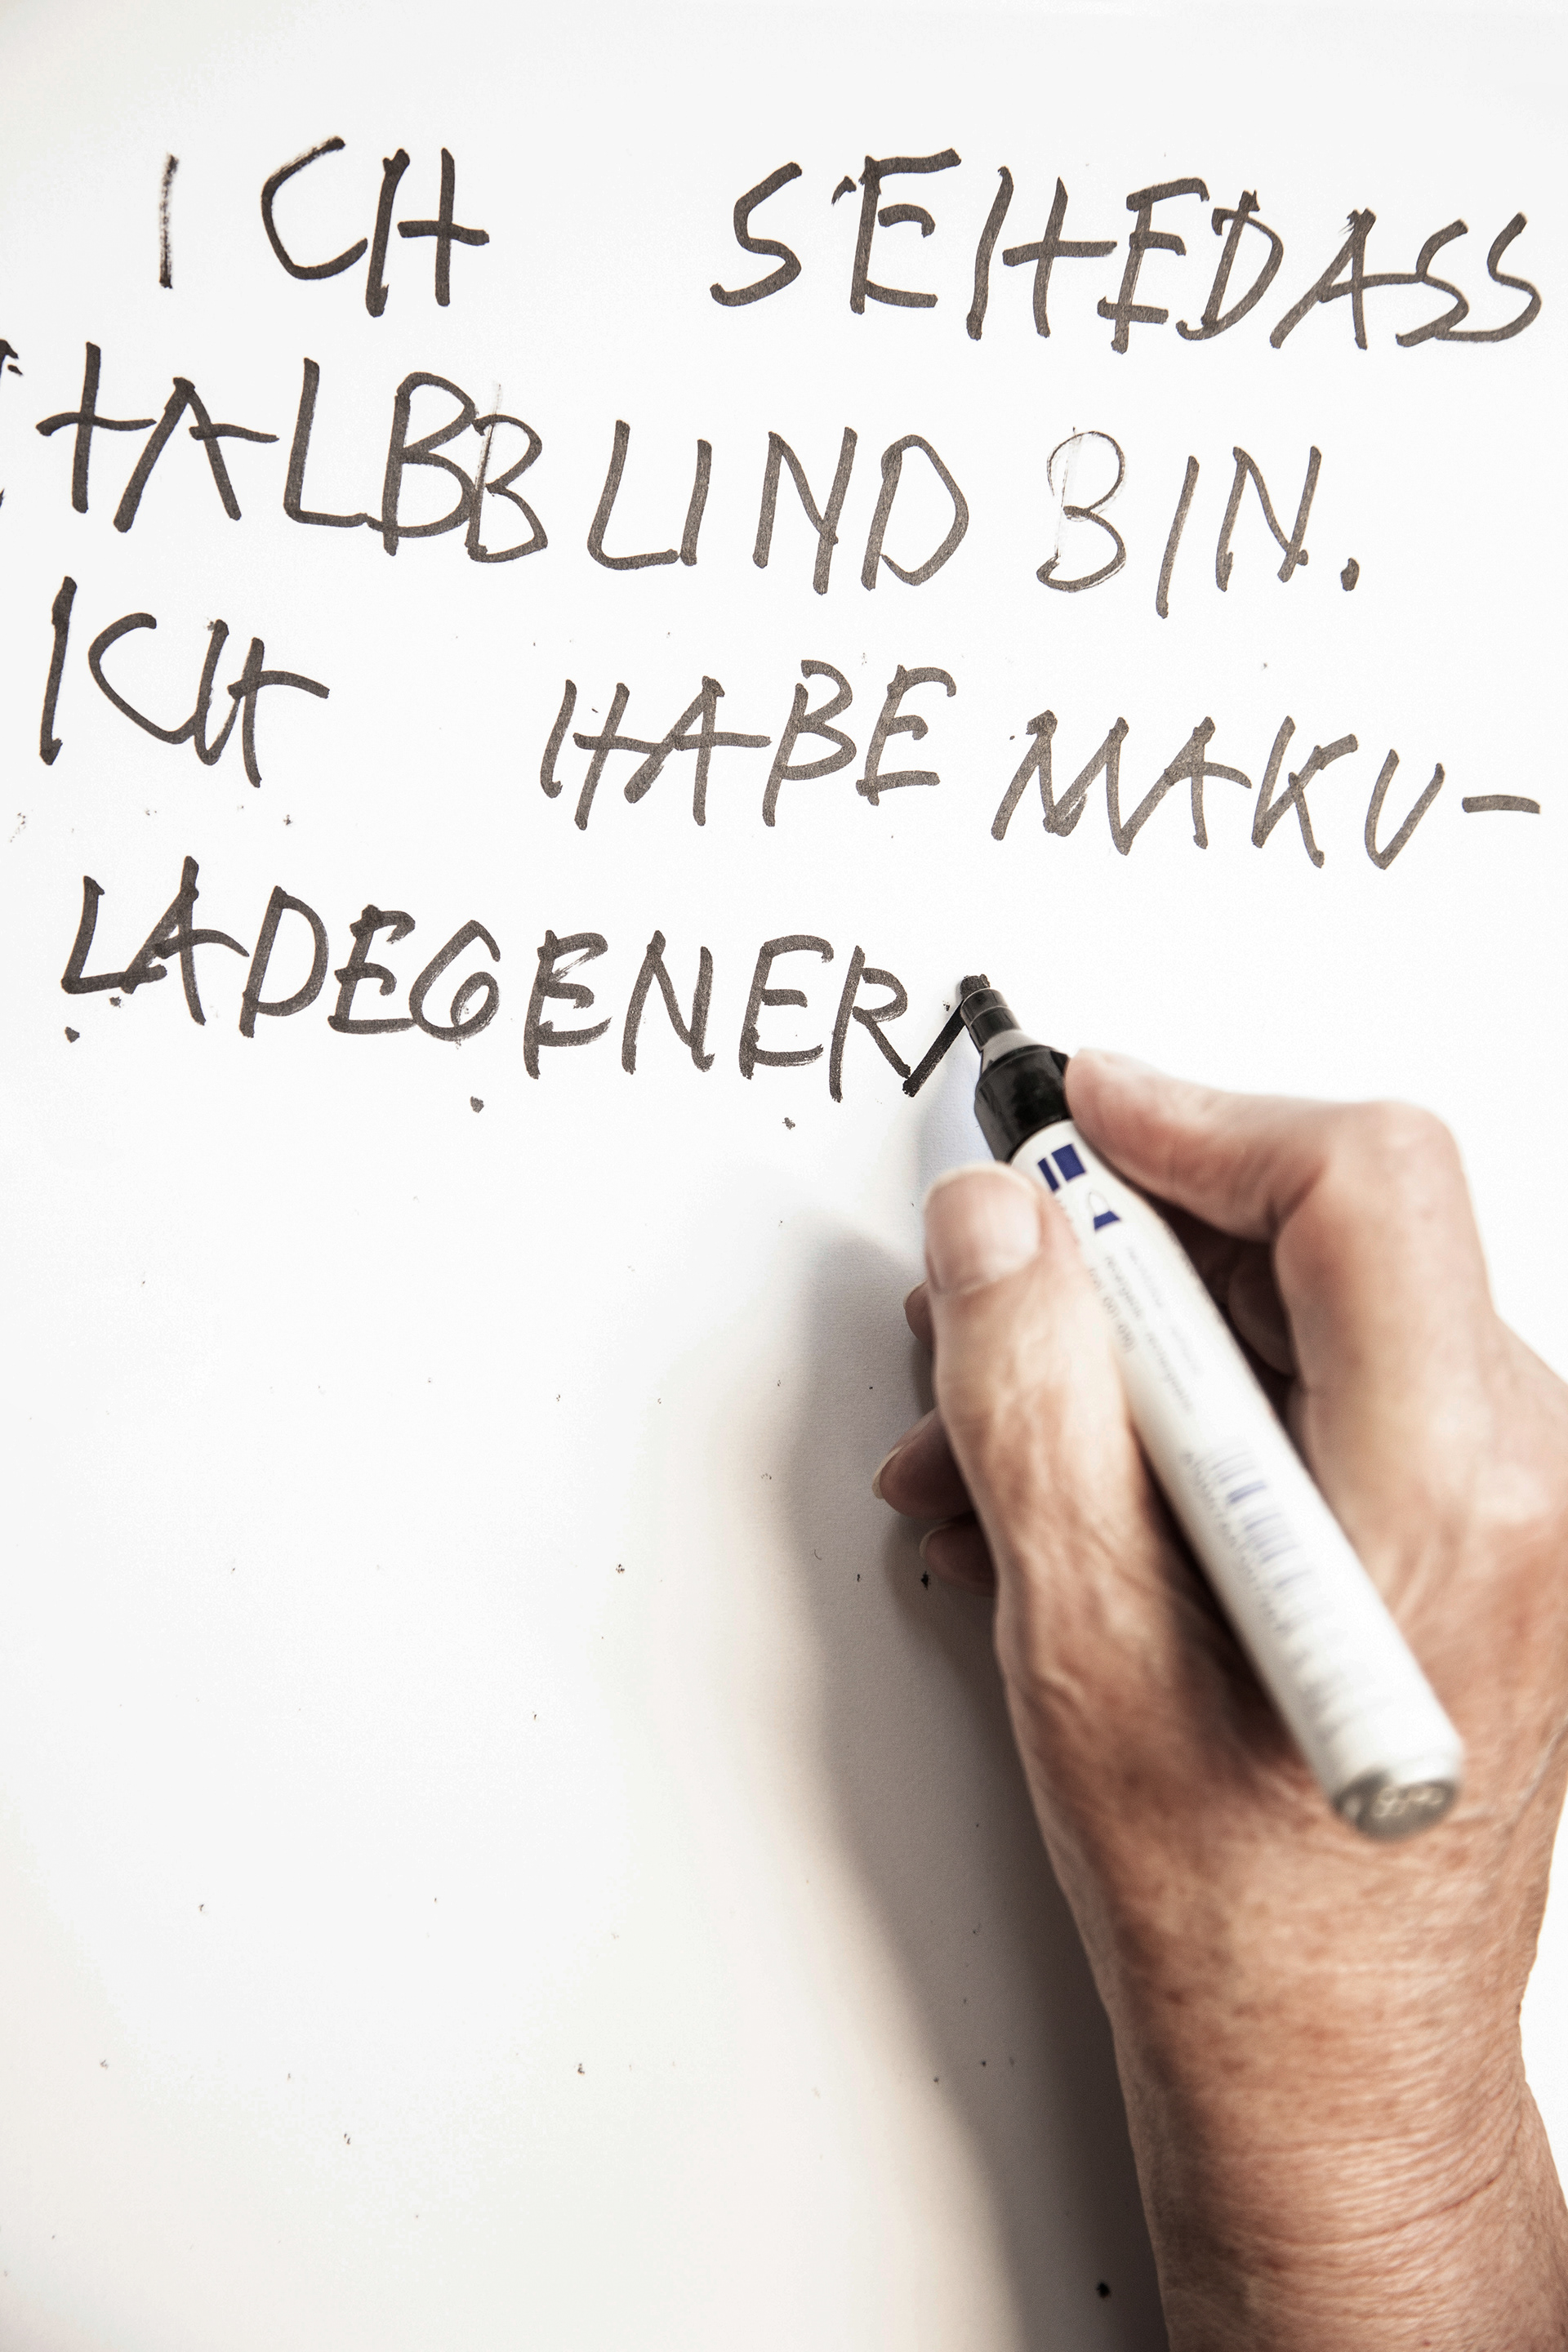 ICH SEHEDASS
HALBBLIND BIN.
ICH HABE MAKU-
LADEGENER